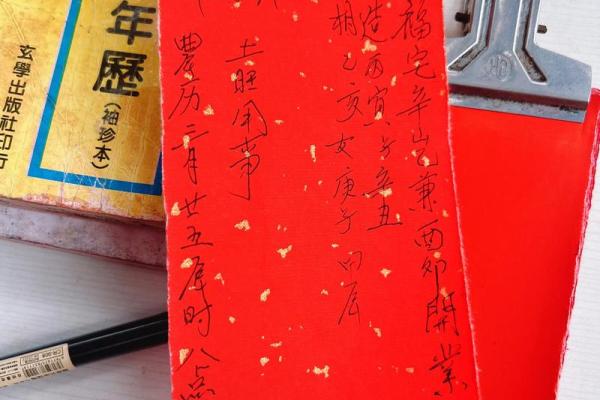 福宅辛山乙兼酉卯開業
造丙寅 子辛丑
相乙亥女庚子 丙辰
土旺用事
農历三月廿五辰时八点
年歷
(袖珍本)
玄學出版社印行